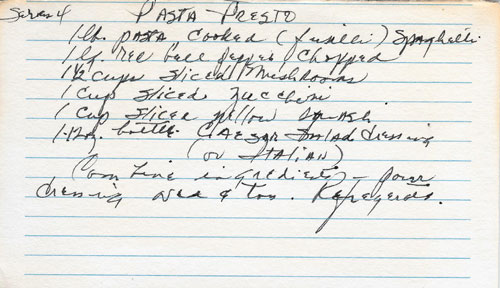 Serves 4 Pasta Presto
1 lb. pasta cooked (fusilli) Spaghetti
1 lg. red bell pepper chopped
1 1/2 cups sliced mushrooms
1 cup sliced zucchini
1 cup sliced yellow squash
1-12 oz. bottle Caesar salad dressing
(or Italian)
Combine ingredients - pour
dressing over & toss. Refrigerate.